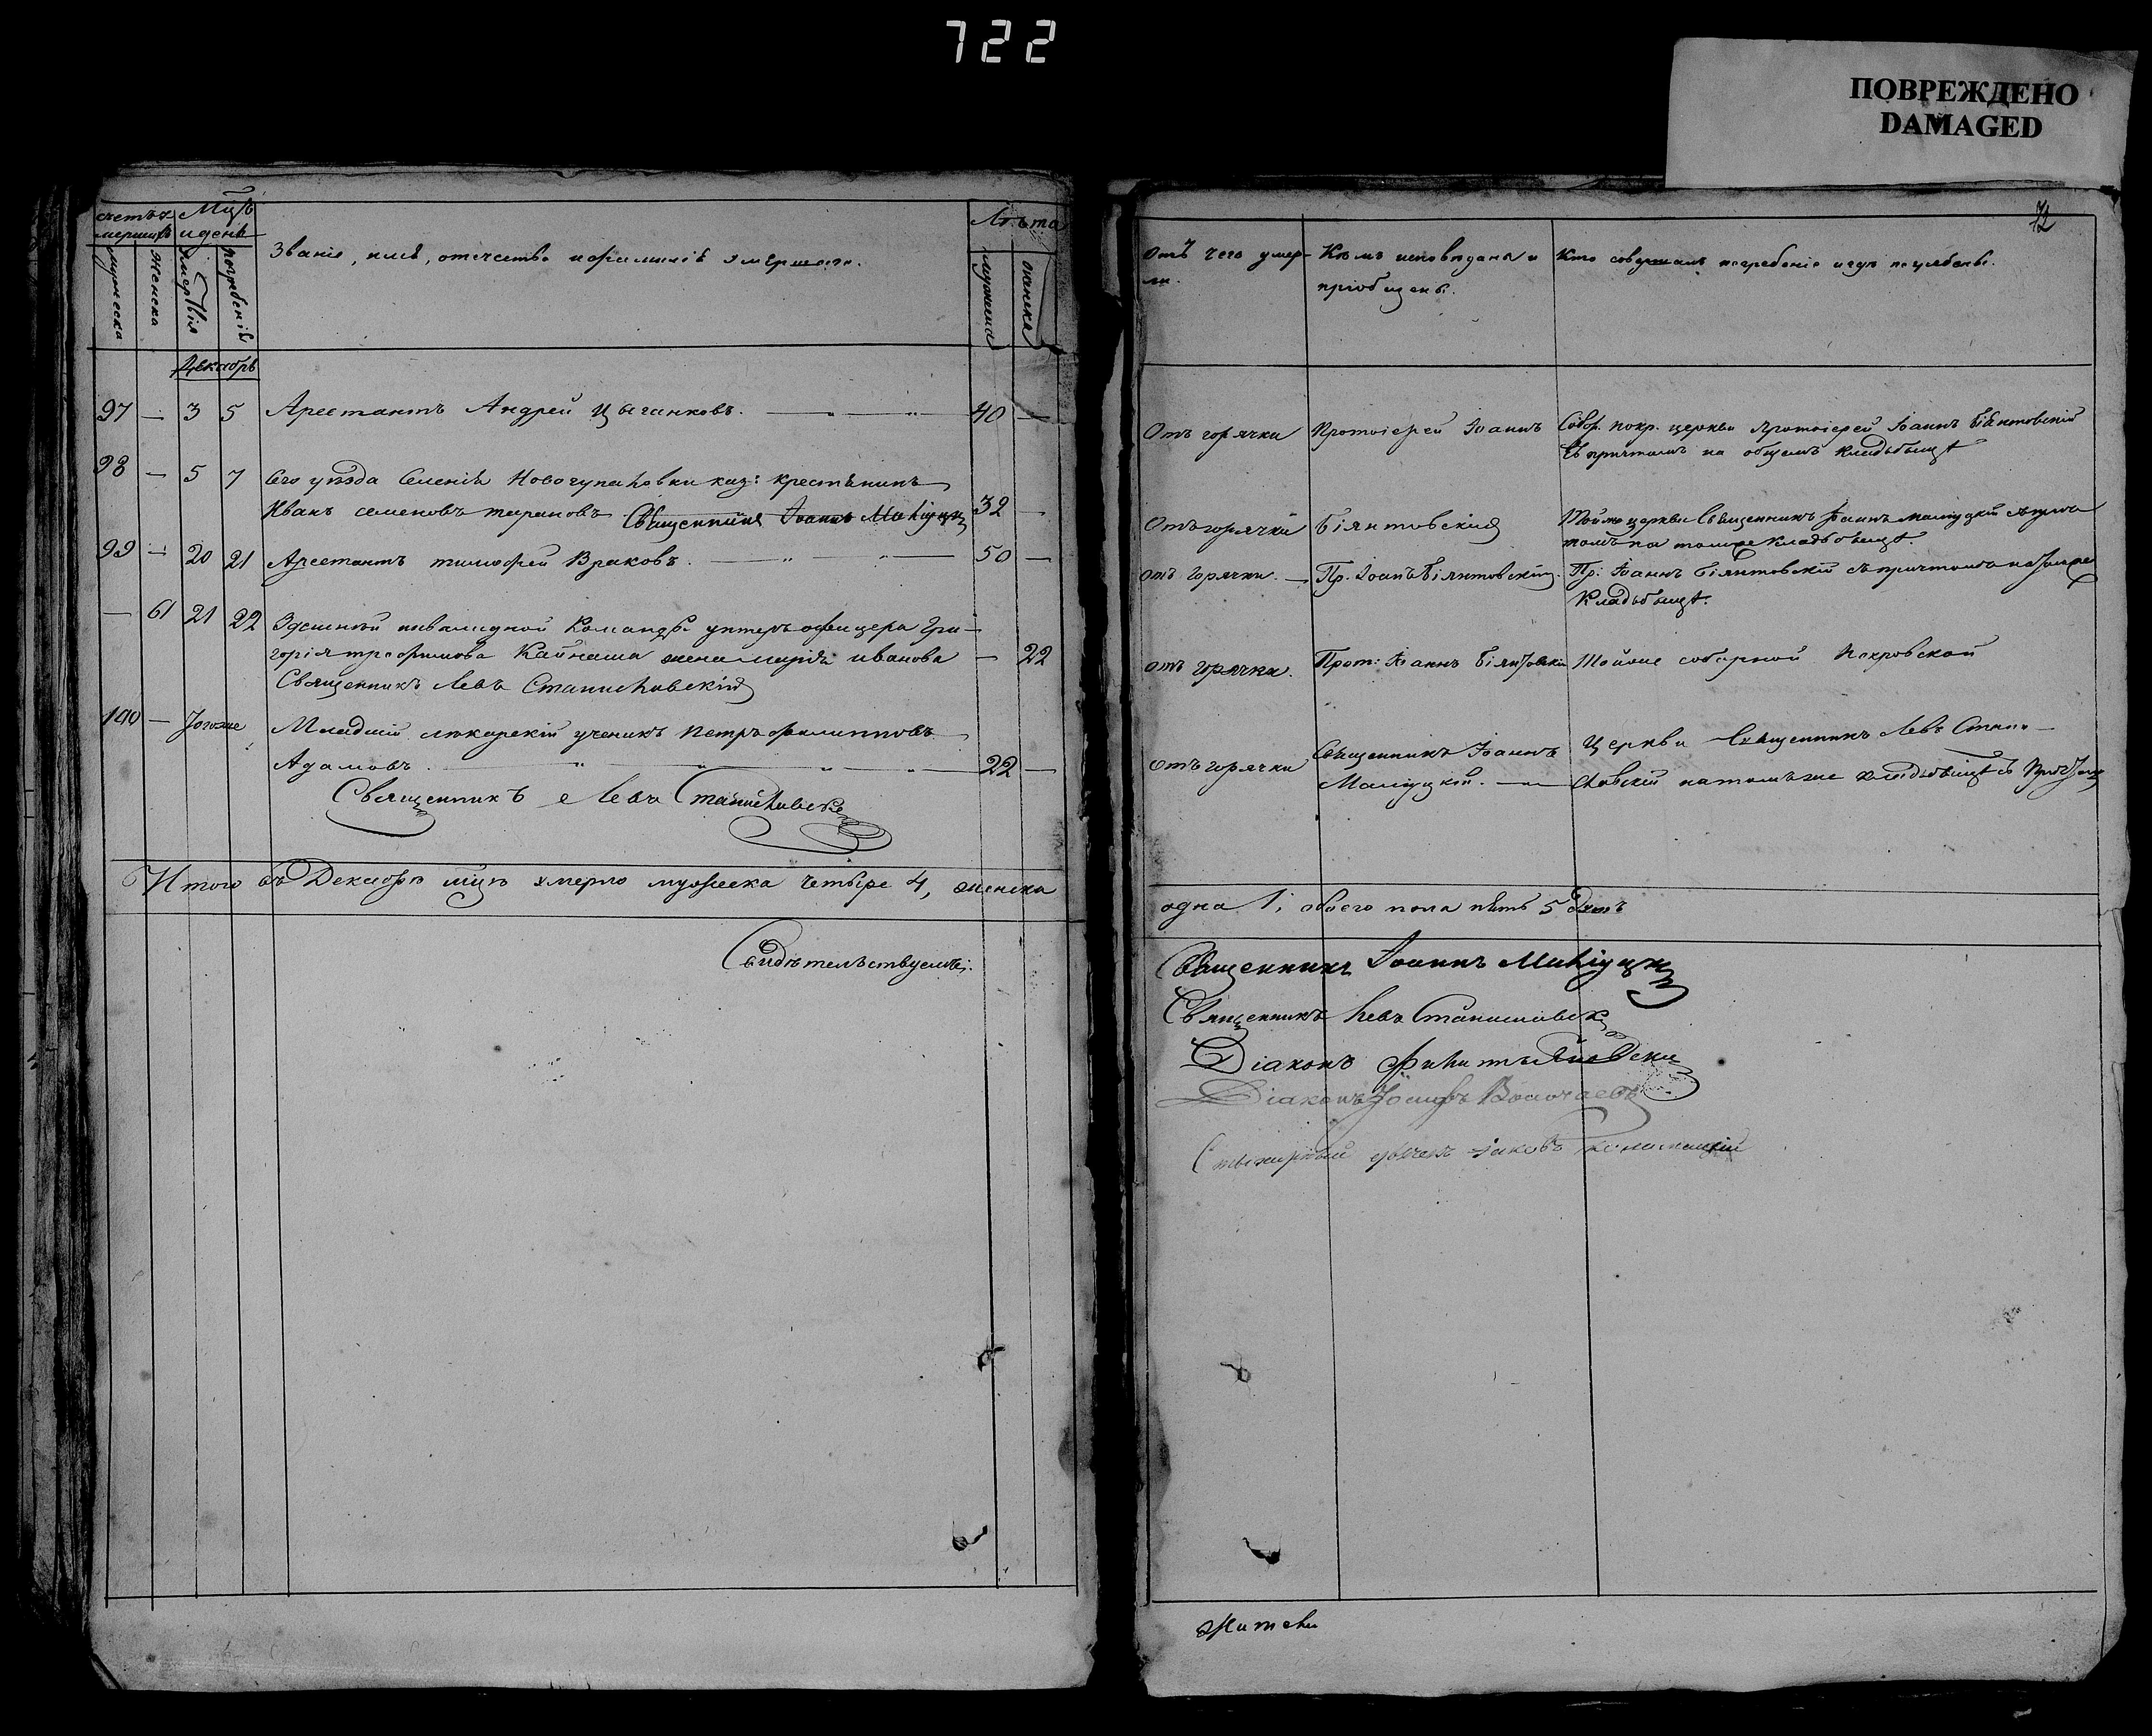 722
ПОВРЕЖДЕНО
DAMAGED
счетъ умершихъ
Мцъ и день
Званіе, имя, отечество и фамилія умершаго.
Лѣта
мужеска
женска
смертія
погребенія
мужеска
женска
Декабрь
97 — 3 5 Арестантъ Андрей Цыганковъ. 40 —
98 — 5 7 Сего уѣзда Селенія Новогупаловки каз: крестьянинъ
Иванъ Семеновъ Тарановъ Священникъ Іоаннъ 32 —
99 — 20 21 Арестантъ Тимофей Враковъ. 50 —
— 61 21 22 Здѣшней инвалидной Команды унтеръ офицера Гри-
горія Трофимова Кайнаша жена Марія Иванова — 22
Священникъ Левъ Станиславскій
100 — Тогоже Младшій лекарскій ученикъ Петръ Филипповъ
Адамовъ. 22 —
Священникъ Левъ Станиславскій
Итого въ Декабрѣ мцѣ умерло мужеска четыре 4, женска
Свидѣтельствуемъ:
72
Отъ чего умер-
ли.
Кѣмъ исповѣданы и
пріобщены.
Кто совершалъ погребеніе и гдѣ погребены.
Отъ горячки Протоіерей Іоаннъ Собор. покр. церкви Протоіерей Іоаннъ Біянтовскій
съ причтомъ на общемъ кладбищѣ
Отъ горячки Біянтовскій Тойже церкви Священникъ Іоаннъ
томъ на томже кладбищѣ.
отъ Горячки. — Пр. Іоаннъ Біянтовскій. Пр: Іоаннъ Біянтовскій съ причтомъ на томже
Кладбищѣ.
отъ горячки. Прот: Іоаннъ Біянтовскій Тойже соборной Покровской
отъ горячки Священникъ Іоаннъ Церкви Священникъ Левъ Стани-
славскій на томъ же кладбищѣ
одна 1, обоего пола пять 5 душъ
Священникъ Іоаннъ
Священникъ Левъ Станиславскій
Діаконъ Филиппъ
Діаконъ Іосифъ
Стихарный дьячекъ Іаковъ